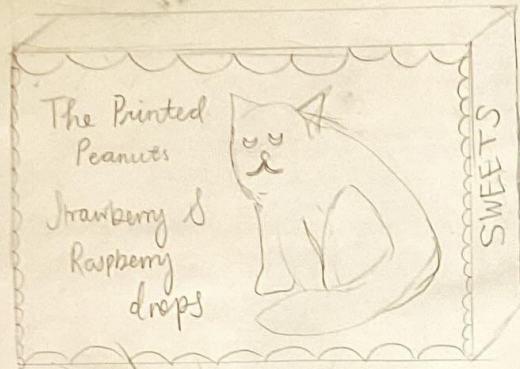 The Printed
Peanuts
Strawberry &
Raspberry
drops
SWEETS